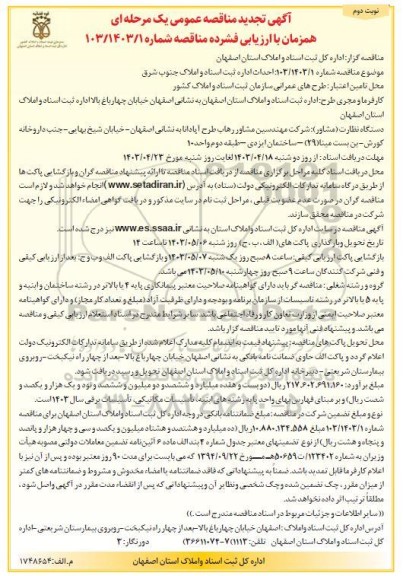 نوبت دوم
آگهی تجدید مناقصه عمومی یک مرحله ای
همزمان با ارزیابی فشرده مناقصه شماره ۱۰۳/۱۴۰۳/۱
مناقصه گزار: اداره کل ثبت اسناد و املاک استان اصفهان
موضوع مناقصه شماره ۱۰۳/۱۴۰۳/۱: احداث اداره ثبت اسناد و املاک جنوب شرق
محل تامین اعتبار: طرح های عمرانی سازمان ثبت اسناد و املاک کشور
کارفرما و مجری طرح: اداره ثبت اسناد و املاک استان اصفهان به نشانی اصفهان خیابان چهارباغ بالا اداره ثبت اسناد و املاک
استان اصفهان
دستگاه نظارت (مشاور): شرکت مهندسین مشاور رهاب طرح آپادانا به نشانی اصفهان - خیابان شیخ بهایی - جنب داروخانه
کورش - بن بست مینا (۲۹) - ساختمان ایزدی - طبقه دوم واحد ۱۰
مهلت دریافت اسناد: از روز دو شنبه ۱۴۰۳/۰۴/۱۸ لغایت روز شنبه مورخ ۱۴۰۳/۰۴/۲۳
محل دریافت اسناد: کلیه مراحل برگزاری مناقصه از دریافت اسناد مناقصه تا ارائه پیشنهاد مناقصه گران و بازگشایی پاکت ها
از طریق درگاه سامانه تدارکات الکترونیکی دولت (ستاد) به آدرس (www.setadiran.ir) انجام خواهد شد و لازم است
مناقصه گران در صورت عدم عضویت قبلی، مراحل ثبت نام در سایت مذکور و دریافت گواهی امضاء الکترونیکی را جهت
شرکت در مناقصه محقق سازند.
آگهی مناقصه در سایت اداره کل ثبت اسناد و املاک استان به نشانی www.es.ssaa.ir نیز درج شده است.
تاریخ تحویل و بارگذاری پاکت های (الف، ب، ج) روز شنبه ۱۴۰۳/۰۵/۰۶ تا ساعت ۱۴
بازگشایی پاکت ارزیابی کیفی: ساعت ۸ صبح روز یک شنبه ۱۴۰۳/۰۵/۰۷ و بازگشایی پاکت الف و ب و ج: بعد از ارزیابی کیفی
و فنی شرکت کنندگان ساعت ۹ صبح روز چهارشنبه ۱۴۰۳/۰۵/۱۰ می باشد.
گروه و رشته شغلی: مناقصه گر باید دارای گواهینامه صلاحیت معتبر پیمانکاری پایه ۴ یا بالاتر در رشته ساختمان و ابنیه و
پایه ۵ یا بالاتر در رشته تاسیسات از سازمان برنامه و بودجه و دارای ظرفیت آزاد (مبلغ و تعداد کار مجاز) و دارای گواهینامه
معتبر صلاحیت ایمنی از وزارت تعاون کار و رفاه اجتماعی باشد. سایر شرایط مندرج در اسناد استعلام ارزیابی کیفی و مناقصه
می باشد. و پیشنهاد فنی آنها مورد تایید مناقصه گزار باشد.
محل تحویل پاکت های مناقصه: پیشنهاد قیمت به انضمام کلیه مدارک اعلام شده از طریق سامانه تدارکات الکترونیک دولت
اعلام گردد و پاکت الف حاوی ضمانت نامه بانکی به نشانی اصفهان خیابان چهارباغ بالا - بعد از چهار راه نیکبخت - روبروی
بیمارستان شریعتی - دبیرخانه اداره کل ثبت اسناد و املاک استان اصفهان تحویل و رسید دریافت شود.
مبلغ برآورد: ۲۱۷،۶۰۲،۶۹۱،۱۶۰ ریال (دویست و هفده میلیارد و ششصد و دو میلیون و ششصد و نود و یک هزار و یکصد و
شصت ریال) و بر مبنای فهارس بهای واحد پایه رشته های ابنیه، تاسیسات مکانیکی، تاسیسات برقی سال ۱۴۰۳ است.
نوع و مبلغ تضمین شرکت در مناقصه: مبلغ ضمانتنامه بانکی در وجه اداره کل ثبت اسناد و املاک استان اصفهان برای مناقصه
شماره ۱۰۳/۱۴۰۳/۱ مبلغ ۱۰،۸۸۰،۱۳۴،۵۵۸ ریال (ده میلیارد و هشتصد و هشتاد میلیون و یکصد و سی و چهار هزار و پانصد
و پنجاه و هشت ریال) از نوع تضمینهای معتبر جدول شماره ۴ بند الف ماده ۶ آئین نامه تضمین معاملات دولتی مصوبه هیأت
وزیران به شماره ۱۲۳۴۰۲/ت۵۰۶۵۹هـ مورخ ۱۳۹۴/۰۹/۲۲ که می بایست برای مدت ۹۰ روز معتبر بوده و پس از آن نیز با
اعلام کارفرما قابل تمدید باشد. ضمناً به پیشنهاداتی که فاقد ضمانتنامه یا امضاء مخدوش و مشروط و ضمانتنامه های کمتر
از میزان مقرر، چک تضمین شده و چک شخصی و نظایر آن و پیشنهاداتی که پس از انقضاء مدت مقرر در آگهی واصل شود،
مطلقاً ترتیب اثر داده نخواهد شد.
(( سایر اطلاعات و جزئیات مربوط در اسناد مناقصه مندرج است.))
آدرس اداره کل ثبت اسناد و املاک: اصفهان خیابان چهارباغ بالا - بعد از چهار راه نیکبخت - روبروی بیمارستان شریعتی - اداره
کل ثبت اسناد و املاک استان اصفهان تلفن: (۱۱۱۳) ۷-۳۶۶۱۱۰۷۴ دورنگار: ۳
اداره کل ثبت اسناد و املاک استان اصفهان
م.الف: ۱۷۴۸۶۵۴